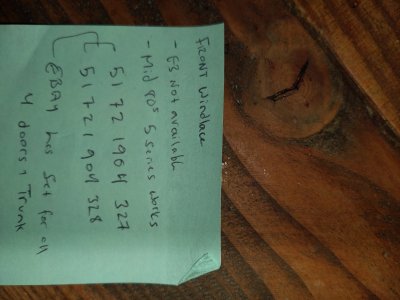 FRONT Windlace
- E3 Not available
- Mid 80s 5 Series works
51 72 1904 327
51 721 904 328
EBAY has Set for all
4 doors & Trunk